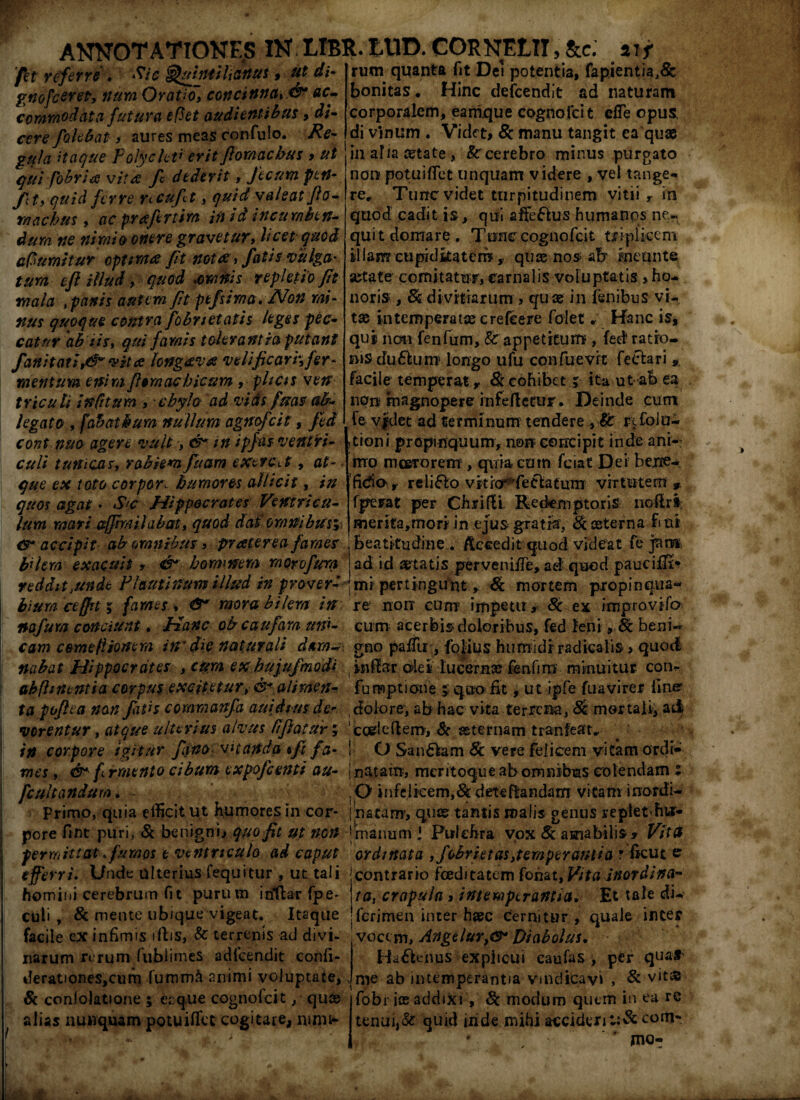 ANNOTATIONES IN LIBR. LUD. CORNELII, &c. 217
fet referre. Sic Quintilianus, ut di-
gnosceret, num Oratio, concinna, & ac-
commodata futura esset audientibus, di-
cere solebat, aures meas consulo. Re-
gula itaque Polycleti erit stomachus, ut
qui sobriæ vitæ se dederit, secum pen-
set, quid ferre recuset, quid valeat sto-
machus, ac præsertim in id incumben-
dum ne nimio onere gravetur, licet quod
assumitur optimæ sit notæ, satis vulga-
tum est illud, quod omnis repletio sit
mala, panis autem sit pessima. Non mi-
nus quoque contra sobrietatis leges pec-
catur ab iis, qui famis tolerantia putant
sanitati, & vitæ longævæ velificari, fer-
mentum enim stomachicum, plicis ven
triculi insitum, chylo ad vias suas ab-
legato, sabathum nullum agnoscit, sed
cont nuo agere vult, & in ipsas ventri-
culi tunicas, rabiem suam exercet, at-
que ex toto corpore humores allicit, in
quos agat. Sic Hippocrates Ventricu-
lum mari assimilabat, quod dat omnibus;
& accipit ab omnibus, præterea fames
bilem exacuit, & hominem morosum
reddit, unde Plautinum illud in prover-
bium cessit; fames, & mora bilem in
nasum conciunt. Hanc ob causam uni-
cam comestionem in die naturali dam-
nabat Hippocrates, cum ex hujusmodi
abstinentia corpus excitetur, & alimen-
ta postea non satis commansa avidius de-
vorentur, atque ulterius alvus sistatur;
in corpore igitur sano vitanda est fa-
mes, & fermento cibum exposcenti au-
scultandum.
Primo, quia efficit ut humores in cor-
pore sint puri, & benigni, quo fit ut non
permittat fumos e ventriculo ad caput
efferri. Unde ulterius sequitur, ut tali
homini cerebrum fit purum instar spe-
culi, & mente ubique vigeat. Itaque
facile ex infimis istis, & terrenis ad divi-
narum rerum sublimes adscendit consi-
derationes, cum summâ animi voluptate,
& consolatione; eaque cognoscit, quæ
alias nunquam potuisset cogitare, nimi-
rum quanta sit Dei potentia, sapientia, &
bonitas. Hinc descendit ad naturam
corporalem, eamque cognoscit esse opus
divinum. Videt, & manu tangit ea quæ
in alia ætate, & cerebro minus purgato
non potuisset unquam videre, vel tange-
re. Tunc videt turpitudinem vitii, in
quod cadit is, qui affectus humanos ne-
quit domare. Tunc cognoscit triplicem
illam cupiditatem, quæ nos ab ineunte
ætate comitatur, carnalis voluptatis, ho-
noris, & divitiarum, quæ in senibus vi-
tæ intemperatæ crescere solet. Hanc is,
qui non sensum, & appetitum, sed ratio-
nis ductum longo usu consuevit sectari,
facile temperat, & cohibet; ita ut ab ea
non magnopere infestetur. Deinde cum
se videt ad terminum tendere, & resolu-
tioni propinquum, non concipit inde ani-
mo mœrorem, quia cum sciat Dei bene-
ficio, relicto vitio sectatum virtutem,
sperat per Christi Redemptoris nostri
merita, mori in ejus gratia, & æterna frui
beatitudine. Accedit quod videat se jam
ad id ætatis pervenisse, ad quod paucissi-
mi pertingunt, & mortem propinqua-
re non cum impetu, & ex improviso
cum acerbis doloribus, sed leni, & beni-
gno passu, solius humidi radicalis, quod
instar olei lucernæ sensim minuitur con-
sumptione; quo fit, ut ipse suaviter sine
dolore, ab hac vita terrena, & mortali, ad
cœlestem, & æternam transeat.
O Sanctam & vere felicem vitam ordi-
natam, meritoque ab omnibus colendam!
O infelicem, & detestandam vitam inordi-
natam, quæ tantis malis genus replet hu-
manum! Pulchra vox & amabilis, Vita
ordinata, sobrietas, temperantia: sicut e
contrario fœditatem sonat, Vita inordina-
ta, crapula, intemperantia. Et tale di-
scrimen inter hæc cernitur, quale inter
vocem, Angelur, & Diabolus.
Hactenus explicui causas, per quas
me ab intemperantia vindicavi, & vitæ
sobriæ addixi, & modum quem in ea re
tenui, & quid inde mihi acciderit: & com-
mo-